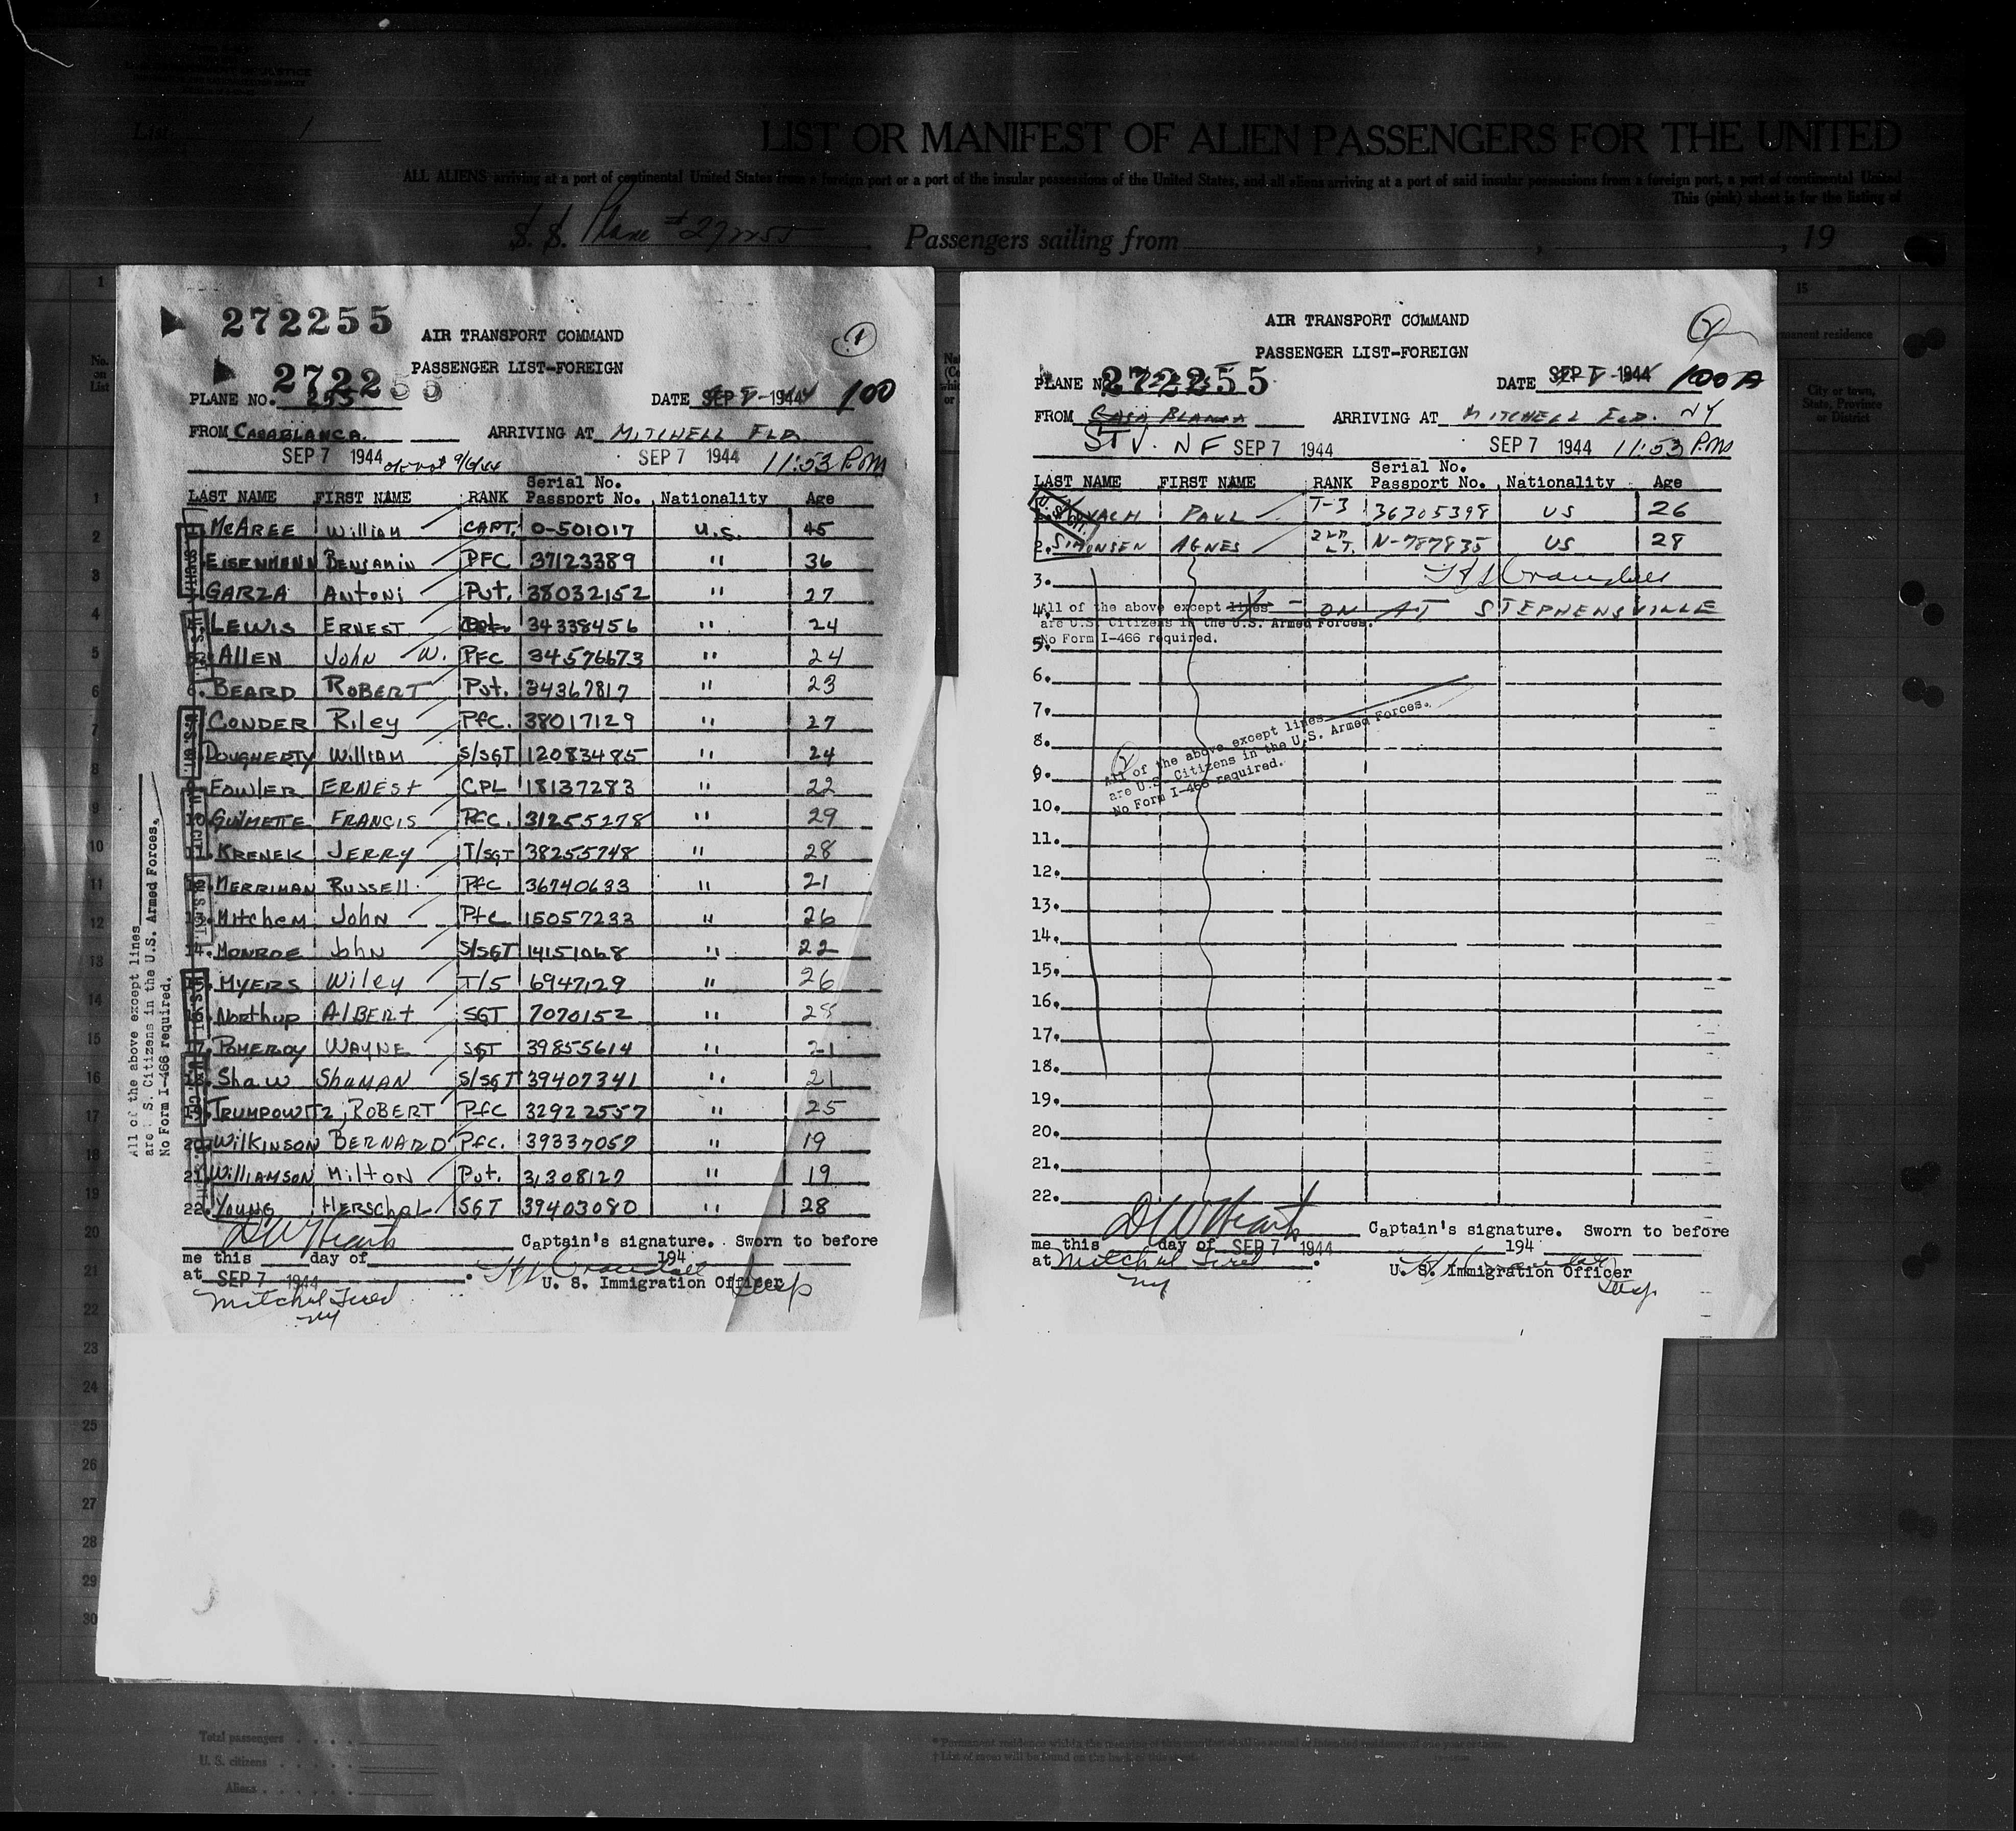 LIST OR MANIFEST OF ALIEN PASSENGERS FOR THE UNITED
ALL ALIENS arriving at a port of continental United States from a foreign port or a port of the insular possessions of the United States, and all aliens arriving at a port of said insular possessions from a foreign port, a port of continental United
This (pink) sheet is for the listing of
List 1
S. S. Plane # 272255 Passengers sailing from , , 19
272255
AIR TRANSPORT COMMAND
1
PASSENGER LIST-FOREIGN
272255
PLANE NO. 255 DATE SEP 7 - 1944 100
FROM CASABLANCA. ARRIVING AT MITCHELL FLD.
SEP 7 1944 9/6/44 SEP 7 1944 11:53 P.M
LAST NAME FIRST NAME RANK Serial No. Passport No. Nationality Age
1. McAREE William CAPT. 0-501017 U.S. 45
2. EISENMANN BENJAMIN PFC 37123389 " 36
3. GARZA ANTONI Pvt. 38032152 " 27
4. LEWIS ERNEST 34338456 " 24
5. ALLEN John W. PFC 34576673 " 24
6. BEARD ROBERT Pvt. 34367817 " 23
7. CONDER Riley Pfc. 38017129 " 27
8. DOUGHERTY William S/SGT 12083485 " 24
9. FOWLER ERNEST CPL 18137283 " 22
10. GUIMETTE FRANCIS PFC. 31255278 " 29
11. KRENEK JERRY T/SGT 38255748 " 28
12. MERRIMAN RUSSELL Pfc 36740633 " 21
13. MitcheM John Pfc 15057233 " 26
14. MONROE John S/SGT 14151068 " 22
15. MYERS Wiley T/5 6947129 " 26
16. Northup ALBERT SGT 7070152 " 28
17. POMEROY WAYNE SGT 39855614 " 21
18. Shaw ShuMAN S/SGT 39407341 " 21
19. TRUMPOWITZ, ROBERT Pfc 32922557 " 25
20. WilKINSON BERNARD Pfc. 39337057 " 19
21. WilliAMSON MiltoN Pvt. 31308127 " 19
22. YOUNG HERSChAL SGT 39403080 " 28
All of the above except lines
are U. S. Citizens in the U.S. Armed Forces.
No Form I-466 required.
Captain's signature. Sworn to before
me this day of 194
at SEP 7 1944 . U. S. Immigration Officer
Mitchel Field
NY
AIR TRANSPORT COMMAND
2
PASSENGER LIST-FOREIGN
PLANE NO. 272255 DATE SEP 7 - 1944 100 A
FROM CASA BLANCA ARRIVING AT MITCHELL FLD. NY
STV. NF SEP 7 1944 SEP 7 1944 11:53 P.M
LAST NAME FIRST NAME RANK Serial No. Passport No. Nationality Age
1. PAUL T-3 36305398 US 26
2. SIMONSEN AGNES 2ND LT. N-787835 US 28
3.
4. ON AT STEPHENSVILLE
All of the above except lines
are U.S. Citizens in the U.S. Armed Forces.
No Form I-466 required.
5.
6.
7.
8.
2
All of the above except lines
are U.S. Citizens in the U.S. Armed Forces.
No Form I-466 required.
9.
10.
11.
12.
13.
14.
15.
16.
17.
18.
19.
20.
21.
22.
Captain's signature. Sworn to before
me this day of SEP 7 1944 194
at Mitchel Field . U. S. Immigration Officer
NY
Total passengers
U. S. citizens
Aliens